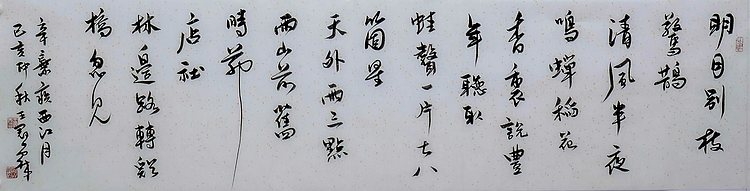 明月別枝
驚鵲
清風半夜
鳴蟬稻花
香裏說豐
年聽取
蛙聲一片七八
箇星
天外兩三點
雨山前舊
時茆
店社
林邊路轉谿
橋忽見
辛棄疾西江月
己亥仲秋